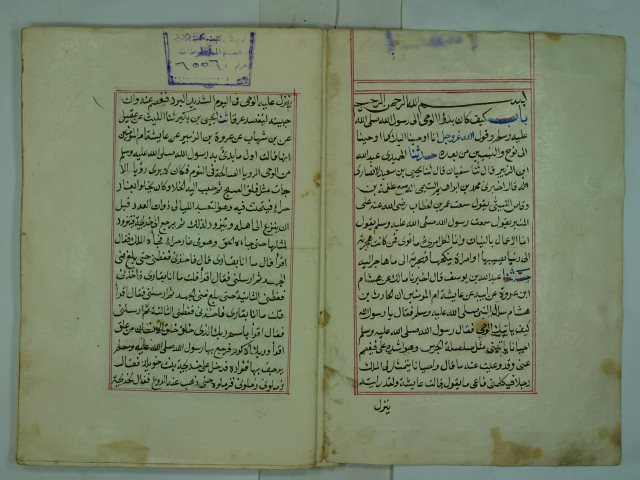 بسم الله الرحمن الرحيم
باب كيف كان بدؤ الوحي الى رسول الله صلى الله
عليه وسلم وقول الله عز وجل انا اوحينا اليك كما اوحينا
الى نوح والنبيين من بعده حدثنا الحميدي عبد الله
ابن الزبير قال ثنا سفيان قال ثنا يحيى بن سعيد الانصاري
قال اخبرني محمد بن ابراهيم التيمي انه سمع علقمة بن
وقاص الليثي يقول سمعت عمر بن الخطاب رضي الله عنه على
المنبر يقول سمعت رسول الله صلى الله عليه وسلم يقول
انما الاعمال بالنيات وانما لكل امرئ ما نوى فمن كانت هجرته
الى دنيا يصيبها او امراة ينكحها فهجرته الى ما هاجر اليه
حدثنا عبد الله بن يوسف قال اخبرنا مالك عن هشام
ابن عروة عن ابيه عن عايشة ام المومنين ان الحارث بن
هشام سال النبي صلى الله عليه وسلم فقال يا رسول الله
كيف ياتيك الوحي فقال رسول الله صلى الله عليه وسلم
احيانا ياتيني مثل صلصلة الجرس وهو اشده علي فيفصم
عني وقد وعيت عنه ما قال واحيانا يتمثل لي الملك
رجلا فيكلمني فاعي ما يقول قالت عائشة ولقد رايته
ينزل
ينزل عليه الوحي في اليوم الشديد البرد فيفصم عنه وان
جبينه ليتفصد عرقا حدثنا يحيى بن بكير ثنا الليث عن عقيل
عن بن شهاب عن عروة بن الزبير عن عايشة ام المومنين
انها قالت اول ما بدئ به رسول الله صلى الله عليه وسلم
من الوحي الرويا الصالحة في النوم فكان لا يرى رؤيا الا
جات مثل فلق الصبح ثم حبب اليه الخلا وكان يخلو بغار
حراء فيتحنث فيه وهو التعبد الليالي ذوات العدد قبل
ان ينزع الى اهله ويتزود لذلك ثم يرجع الى خديجة فيتزود
لمثلها حتى جاه الحق وهو في غار حراء فجاه الملك فقال
اقرأ قال ما انا بقارئ قال فاخذني فغطني حتى بلغ مني
الجهد ثم ارسلني فقال اقرأ قلت ما انا بقارئ فاخذني
فغطني الثانية حتى بلغ مني الجهد ثم ارسلني فقال اقرأ
قلت ما انا بقارئ فاخذني فغطني الثالثة ثم ارسلني
فقال اقرأ باسم ربك الذي خلق خلق الانسان من علق
اقرأ وربك الاكرم فرجع بها رسول الله صلى الله عليه وسلم
يرجف بها فؤاده فدخل على خديجة بنت خويلد فقال
زملوني زملوني فزملوه حتى ذهب عنه الروع فقال لخديجة